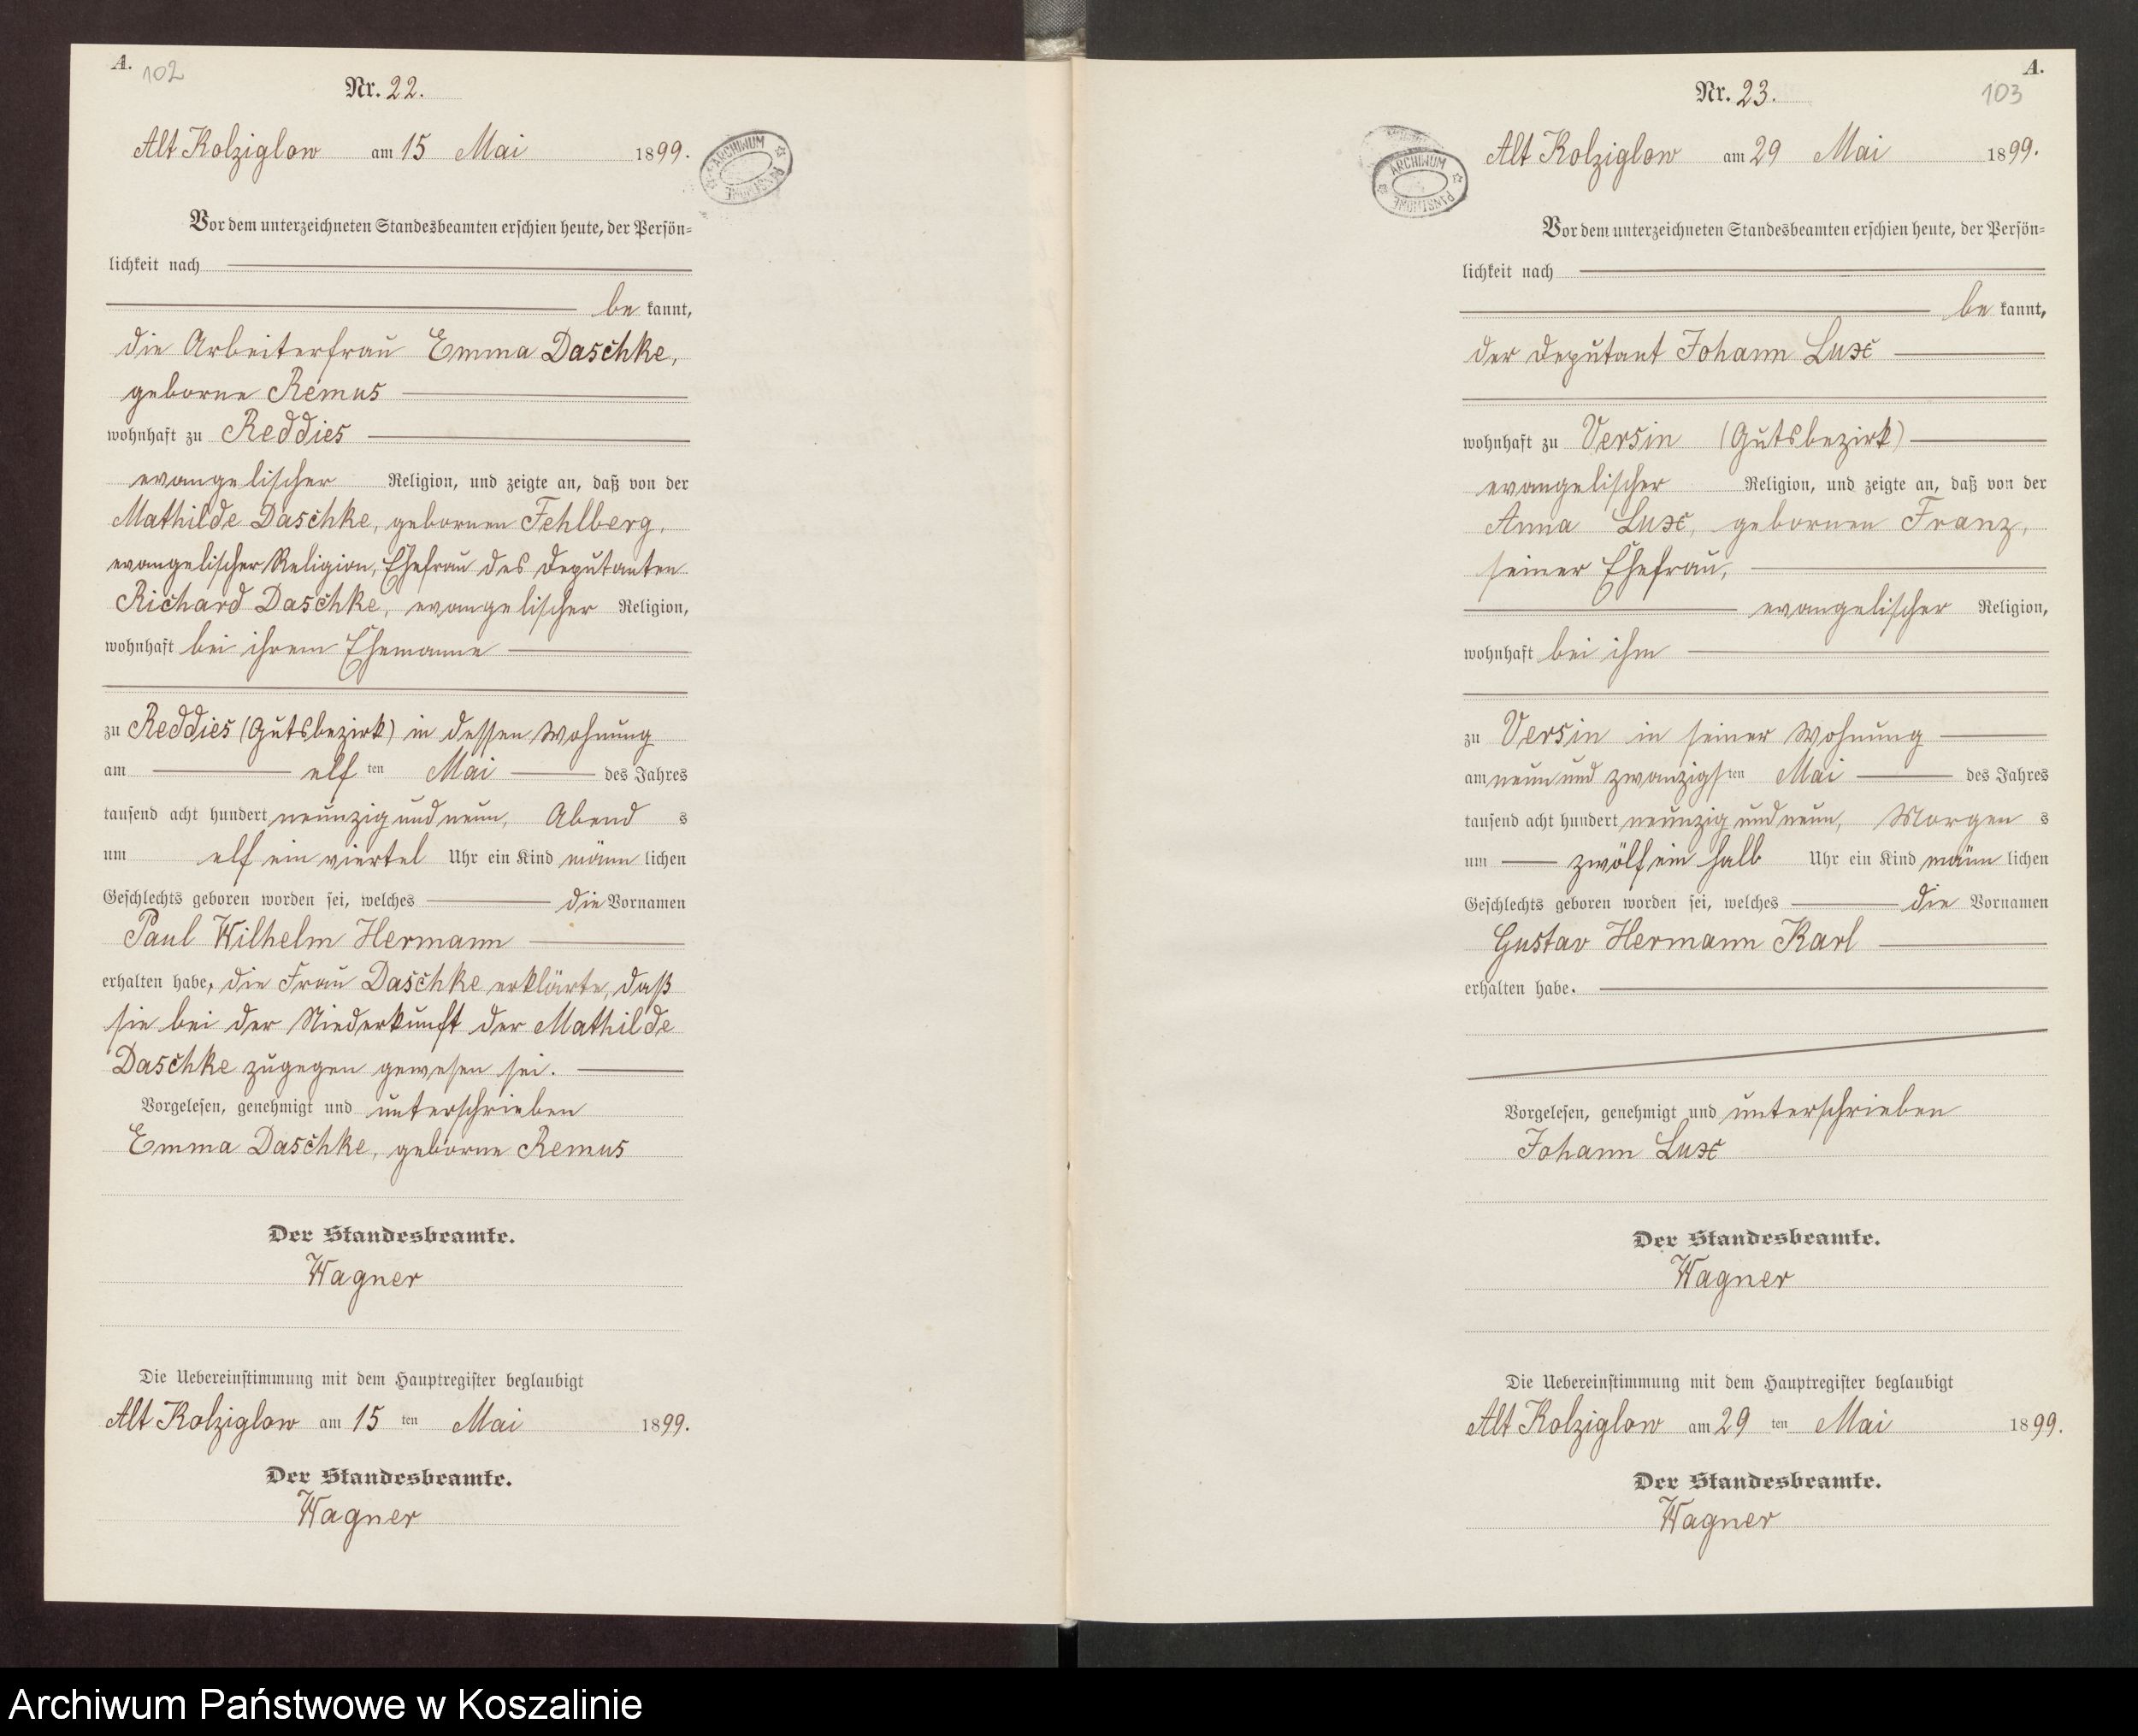 A.
102
Nr. 22.
Alt Kolziglow am 15 Mai 1899.
ARCHIWUM PAŃSTWOWE
Vor dem unterzeichneten Standesbeamten erschien heute, der Persön=
lichkeit nach
be kannt,
die Arbeiterfrau Emma Daschke,
geborne Remus
wohnhaft zu Reddies
evangelischer Religion, und zeigte an, daß von der
Mathilde Daschke, gebornen Fehlberg,
evangelischer Religion, Ehefrau des Deputanten
Richard Daschke, evangelischer Religion,
wohnhaft bei ihrem Ehemanne
zu Reddies (Gutsbezirk) in dessen Wohnung
am elf ten Mai des Jahres
tausend acht hundert neunzig und neun, Abend s
um elf ein viertel Uhr ein Kind männ lichen
Geschlechts geboren worden sei, welches die Vornamen
Paul Wilhelm Hermann
erhalten habe, die Frau Daschke erklärte, daß
sie bei der Niederkunft der Mathilde
Daschke zugegen gewesen sei.
Vorgelesen, genehmigt und unterschrieben
Emma Daschke, geborne Remus
Der Standesbeamte.
Wagner
Die Uebereinstimmung mit dem Hauptregister beglaubigt
Alt Kolziglow am 15 ten Mai 1899.
Der Standesbeamte.
Wagner
A.
103
Nr. 23.
Alt Kolziglow am 29 Mai 1899.
ARCHIWUM PAŃSTWOWE
Vor dem unterzeichneten Standesbeamten erschien heute, der Persön=
lichkeit nach
be kannt,
der Deputant Johann Lux
wohnhaft zu Versin (Gutsbezirk)
evangelischer Religion, und zeigte an, daß von der
Anna Lux, gebornen Franz,
seiner Ehefrau,
evangelischer Religion,
wohnhaft bei ihm
zu Versin in seiner Wohnung
am neun und zwanzigs ten Mai des Jahres
tausend acht hundert neunzig und neun, Morgen s
um zwölf ein halb Uhr ein Kind männ lichen
Geschlechts geboren worden sei, welches die Vornamen
Gustav Hermann Karl
erhalten habe.
Vorgelesen, genehmigt und unterschrieben
Johann Lux
Der Standesbeamte.
Wagner
Die Uebereinstimmung mit dem Hauptregister beglaubigt
Alt Kolziglow am 29 ten Mai 1899.
Der Standesbeamte.
Wagner
Archiwum Państwowe w Koszalinie